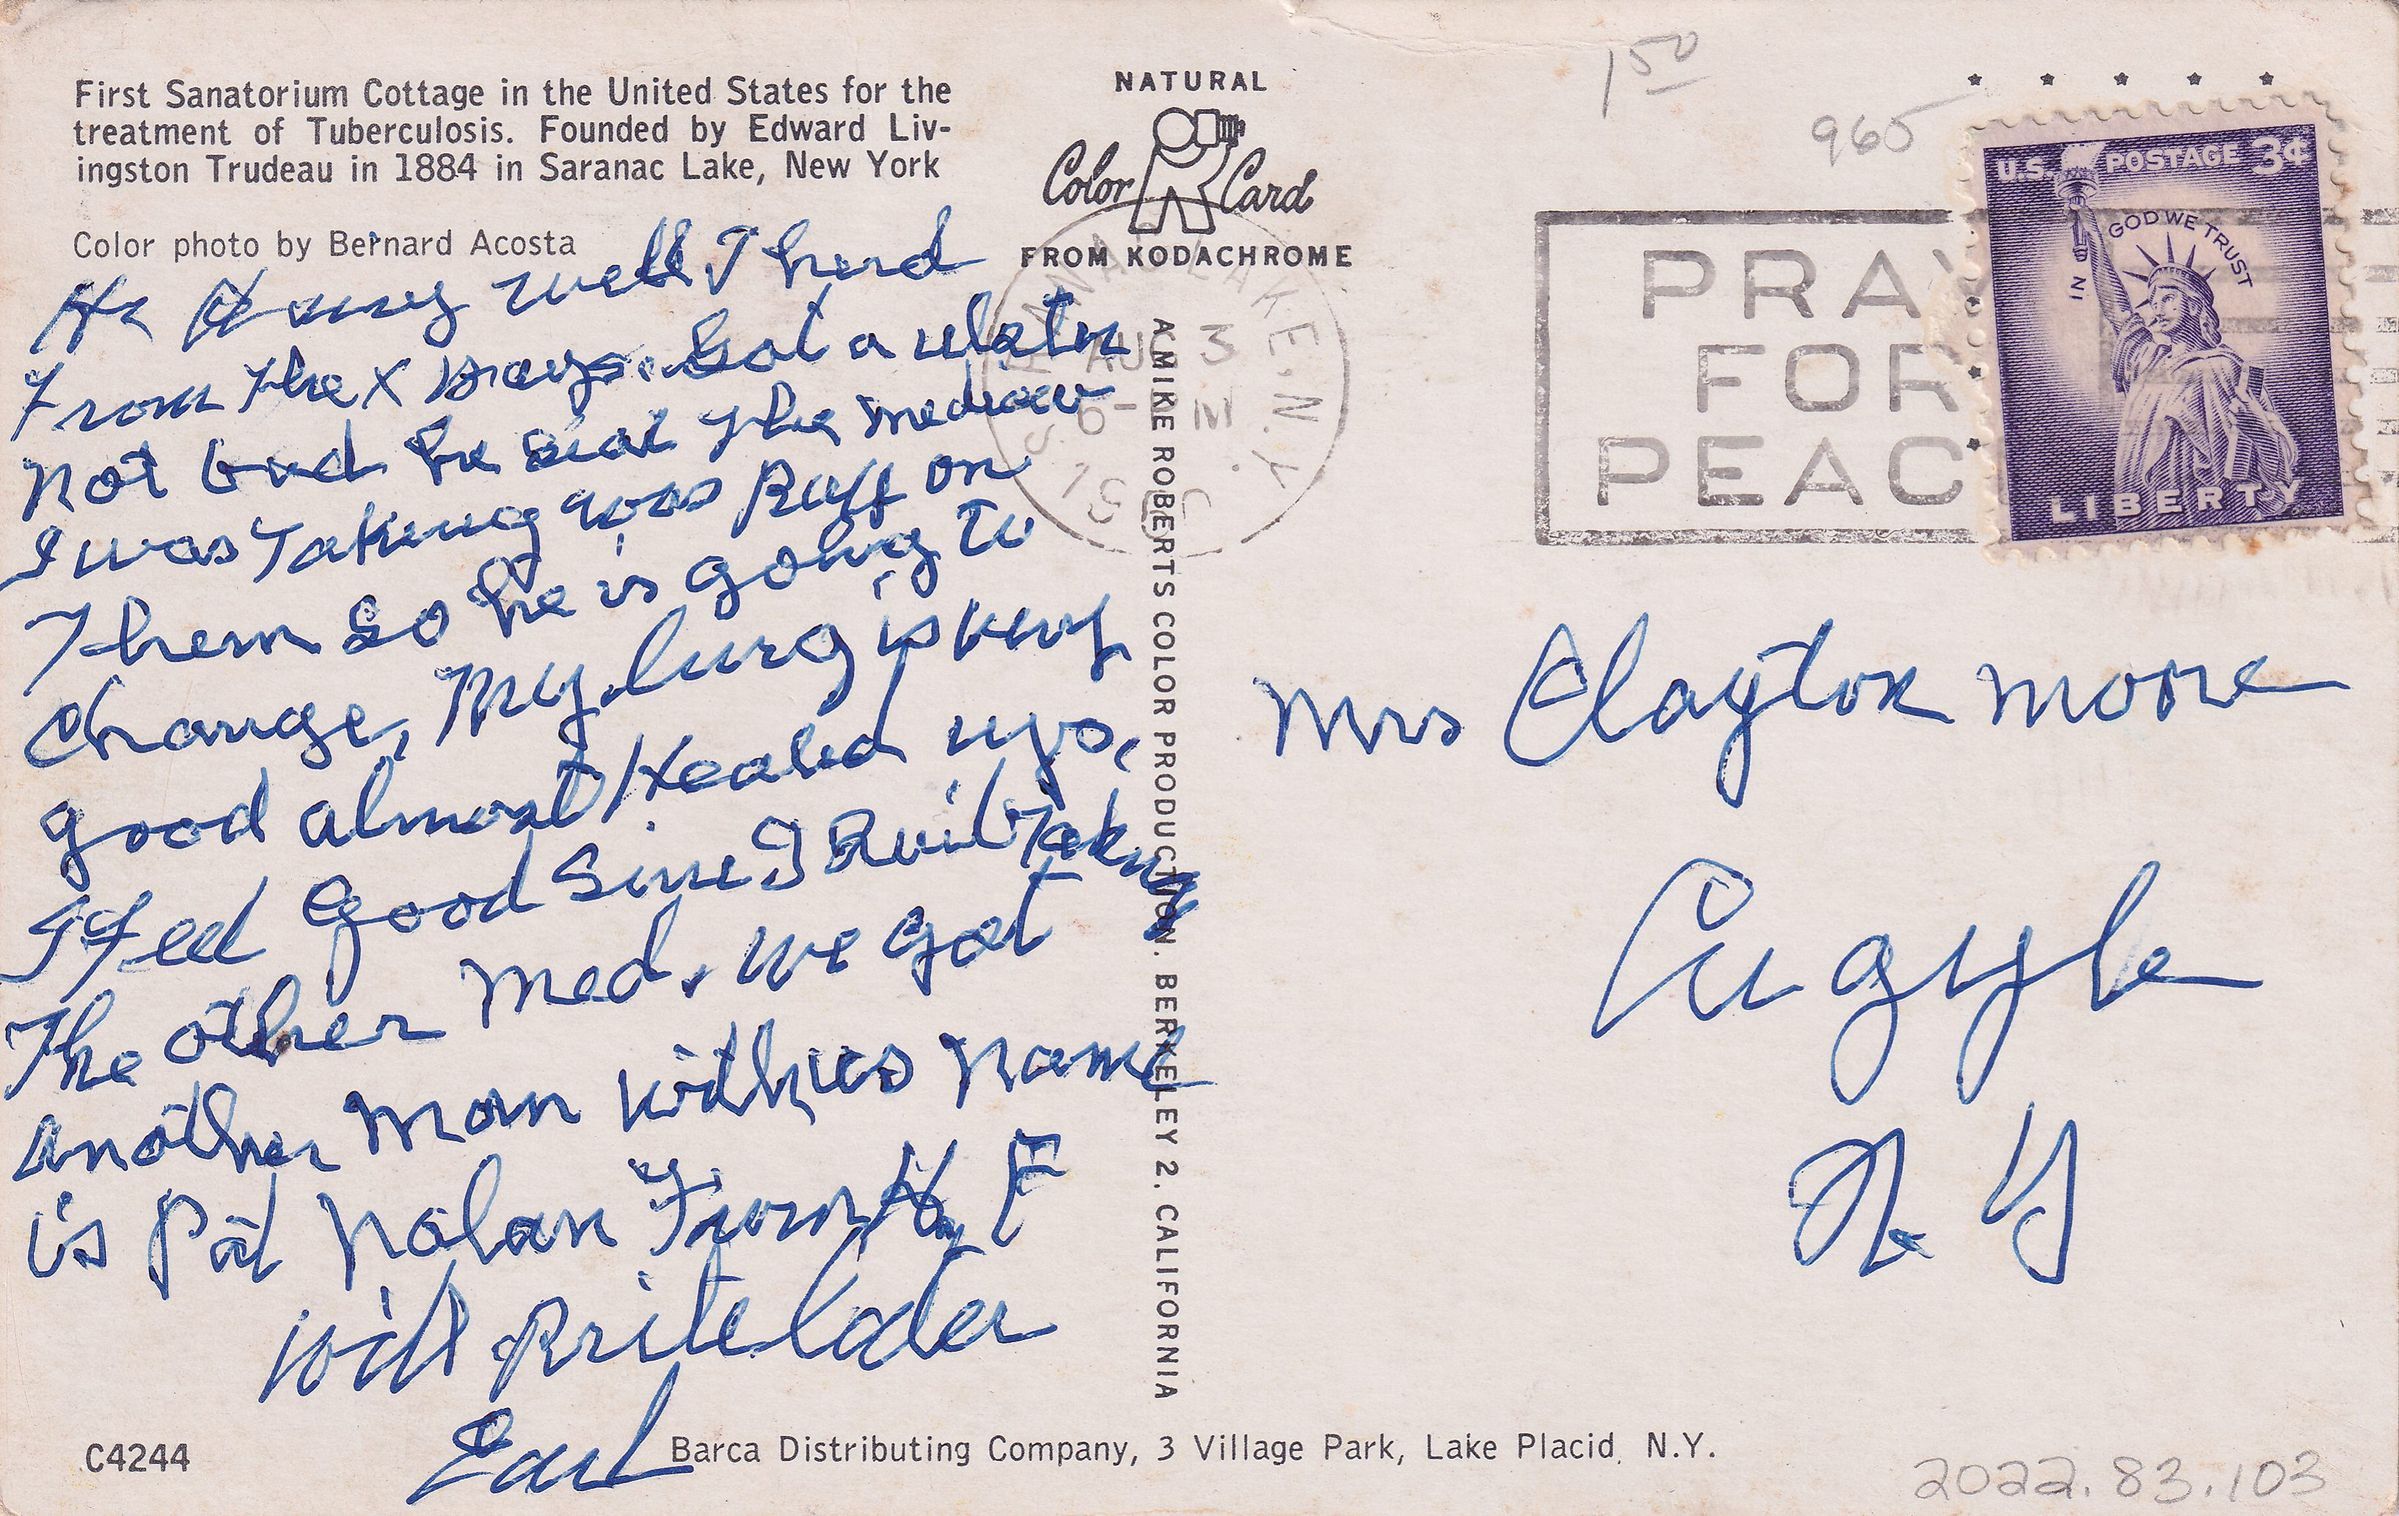 First Sanatorium Cottage in the United States for the
treatment of Tuberculosis. Founded by Edward Liv-
ingston Trudeau in 1884 in Saranac Lake, New York
Color photo by Bernard Acosta
NATURAL
Color Card
FROM KODACHROME
1 50
965
U.S. POSTAGE 3¢
IN GOD WE TRUST
LIBERTY
PRAY
FOR
PEAC
SARANAC LAKE, N.Y.
AUG 3
6- PM
Hi Hany well I hurd
From the X Rays. Got a
not bad he said the
I was Taking was Ruff on
Them so he is going To
change, My lung is very
good almost Healed up,
I feel good Since I Quit Taking
The other med. we got
another man with us name
is Pat Nolan From H F
will Rrite later
Earl
A MIKE ROBERTS COLOR PRODUCTION. BERKELEY 2. CALIFORNIA
Mrs Clayton Moore
Argyle
N Y
C4244
Barca Distributing Company, 3 Village Park, Lake Placid, N.Y.
2022.83.103